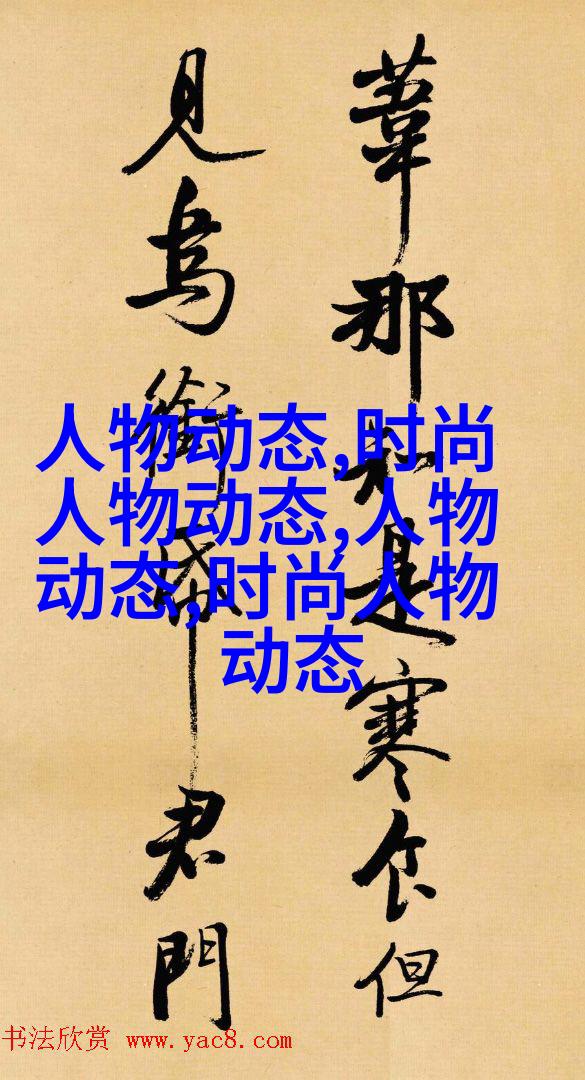 葦那知是寒食但
見烏銜帋君門
人物动态,时尚
人物动态,人物
动态,时尚人物
动态
书法欣赏 www.yac8.com